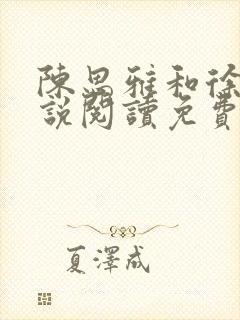 陳思雅和徐
說閱讀免費
夏澤成